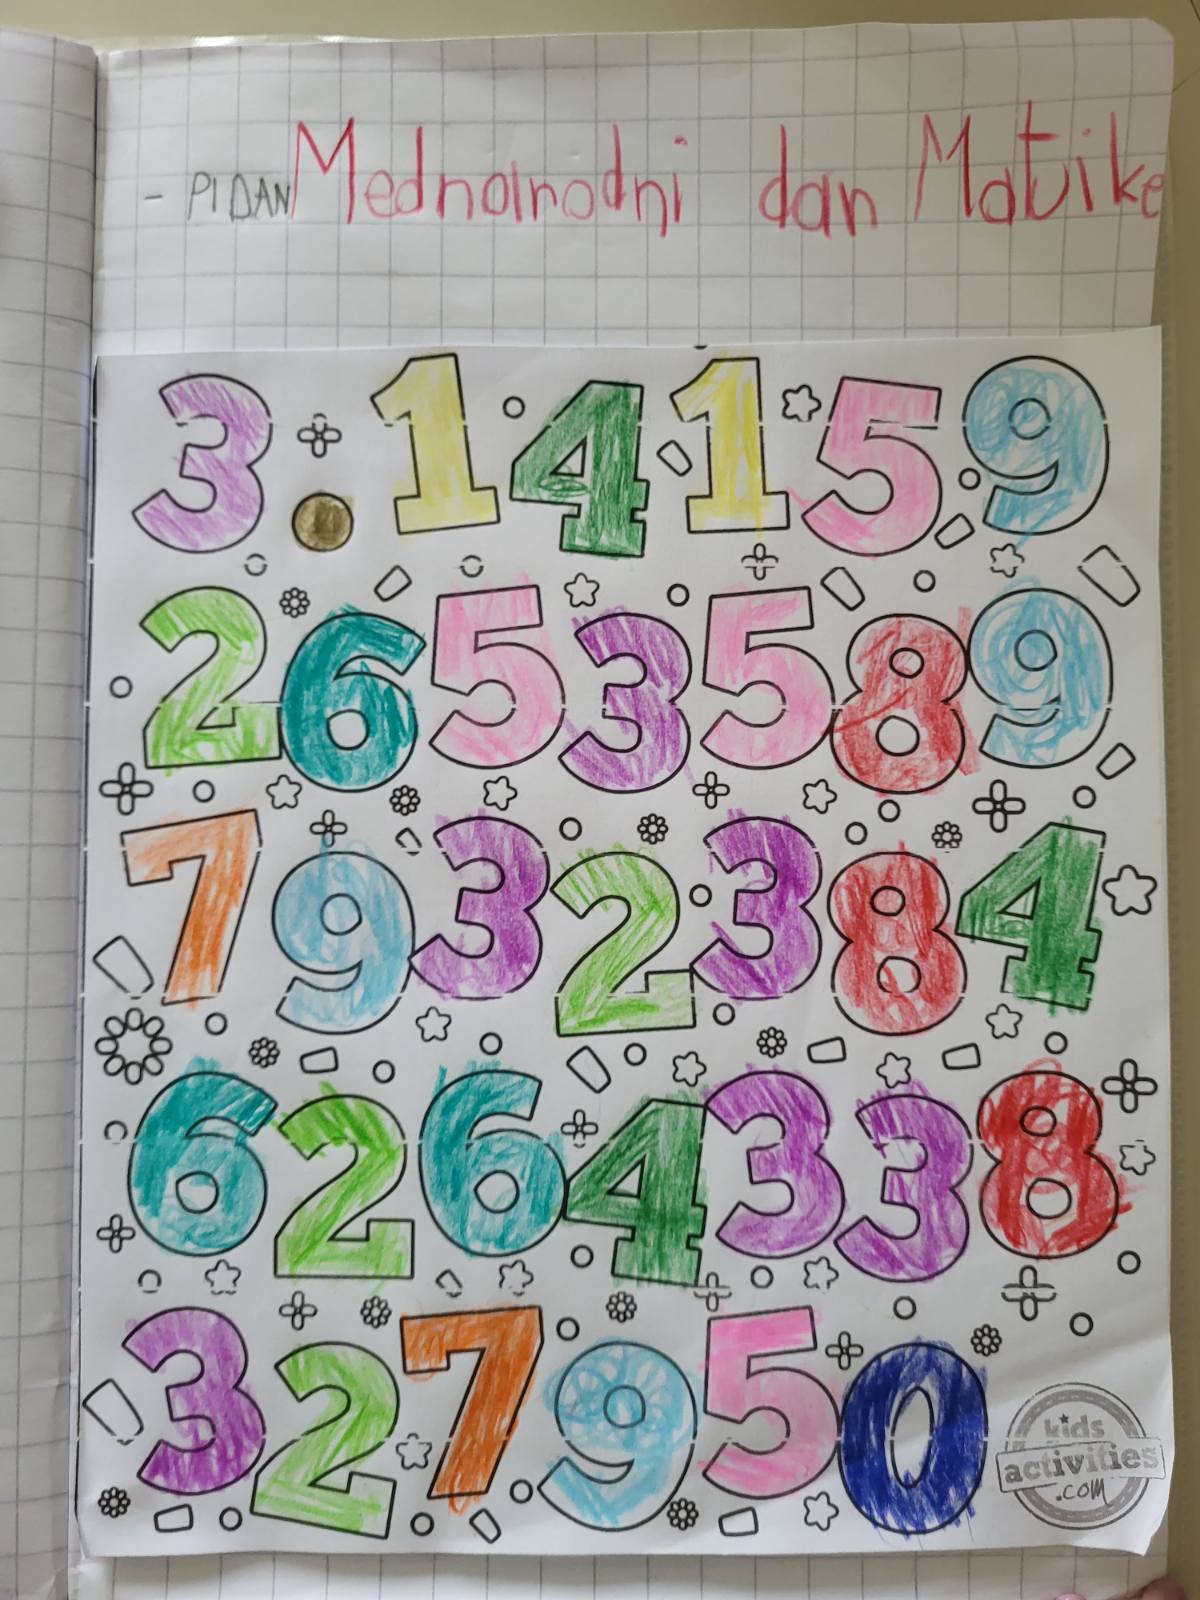 - PI DAN Mednarodni dan Matike
3.14159
2653589
7932384
6264338
327950
kids
activities
.com